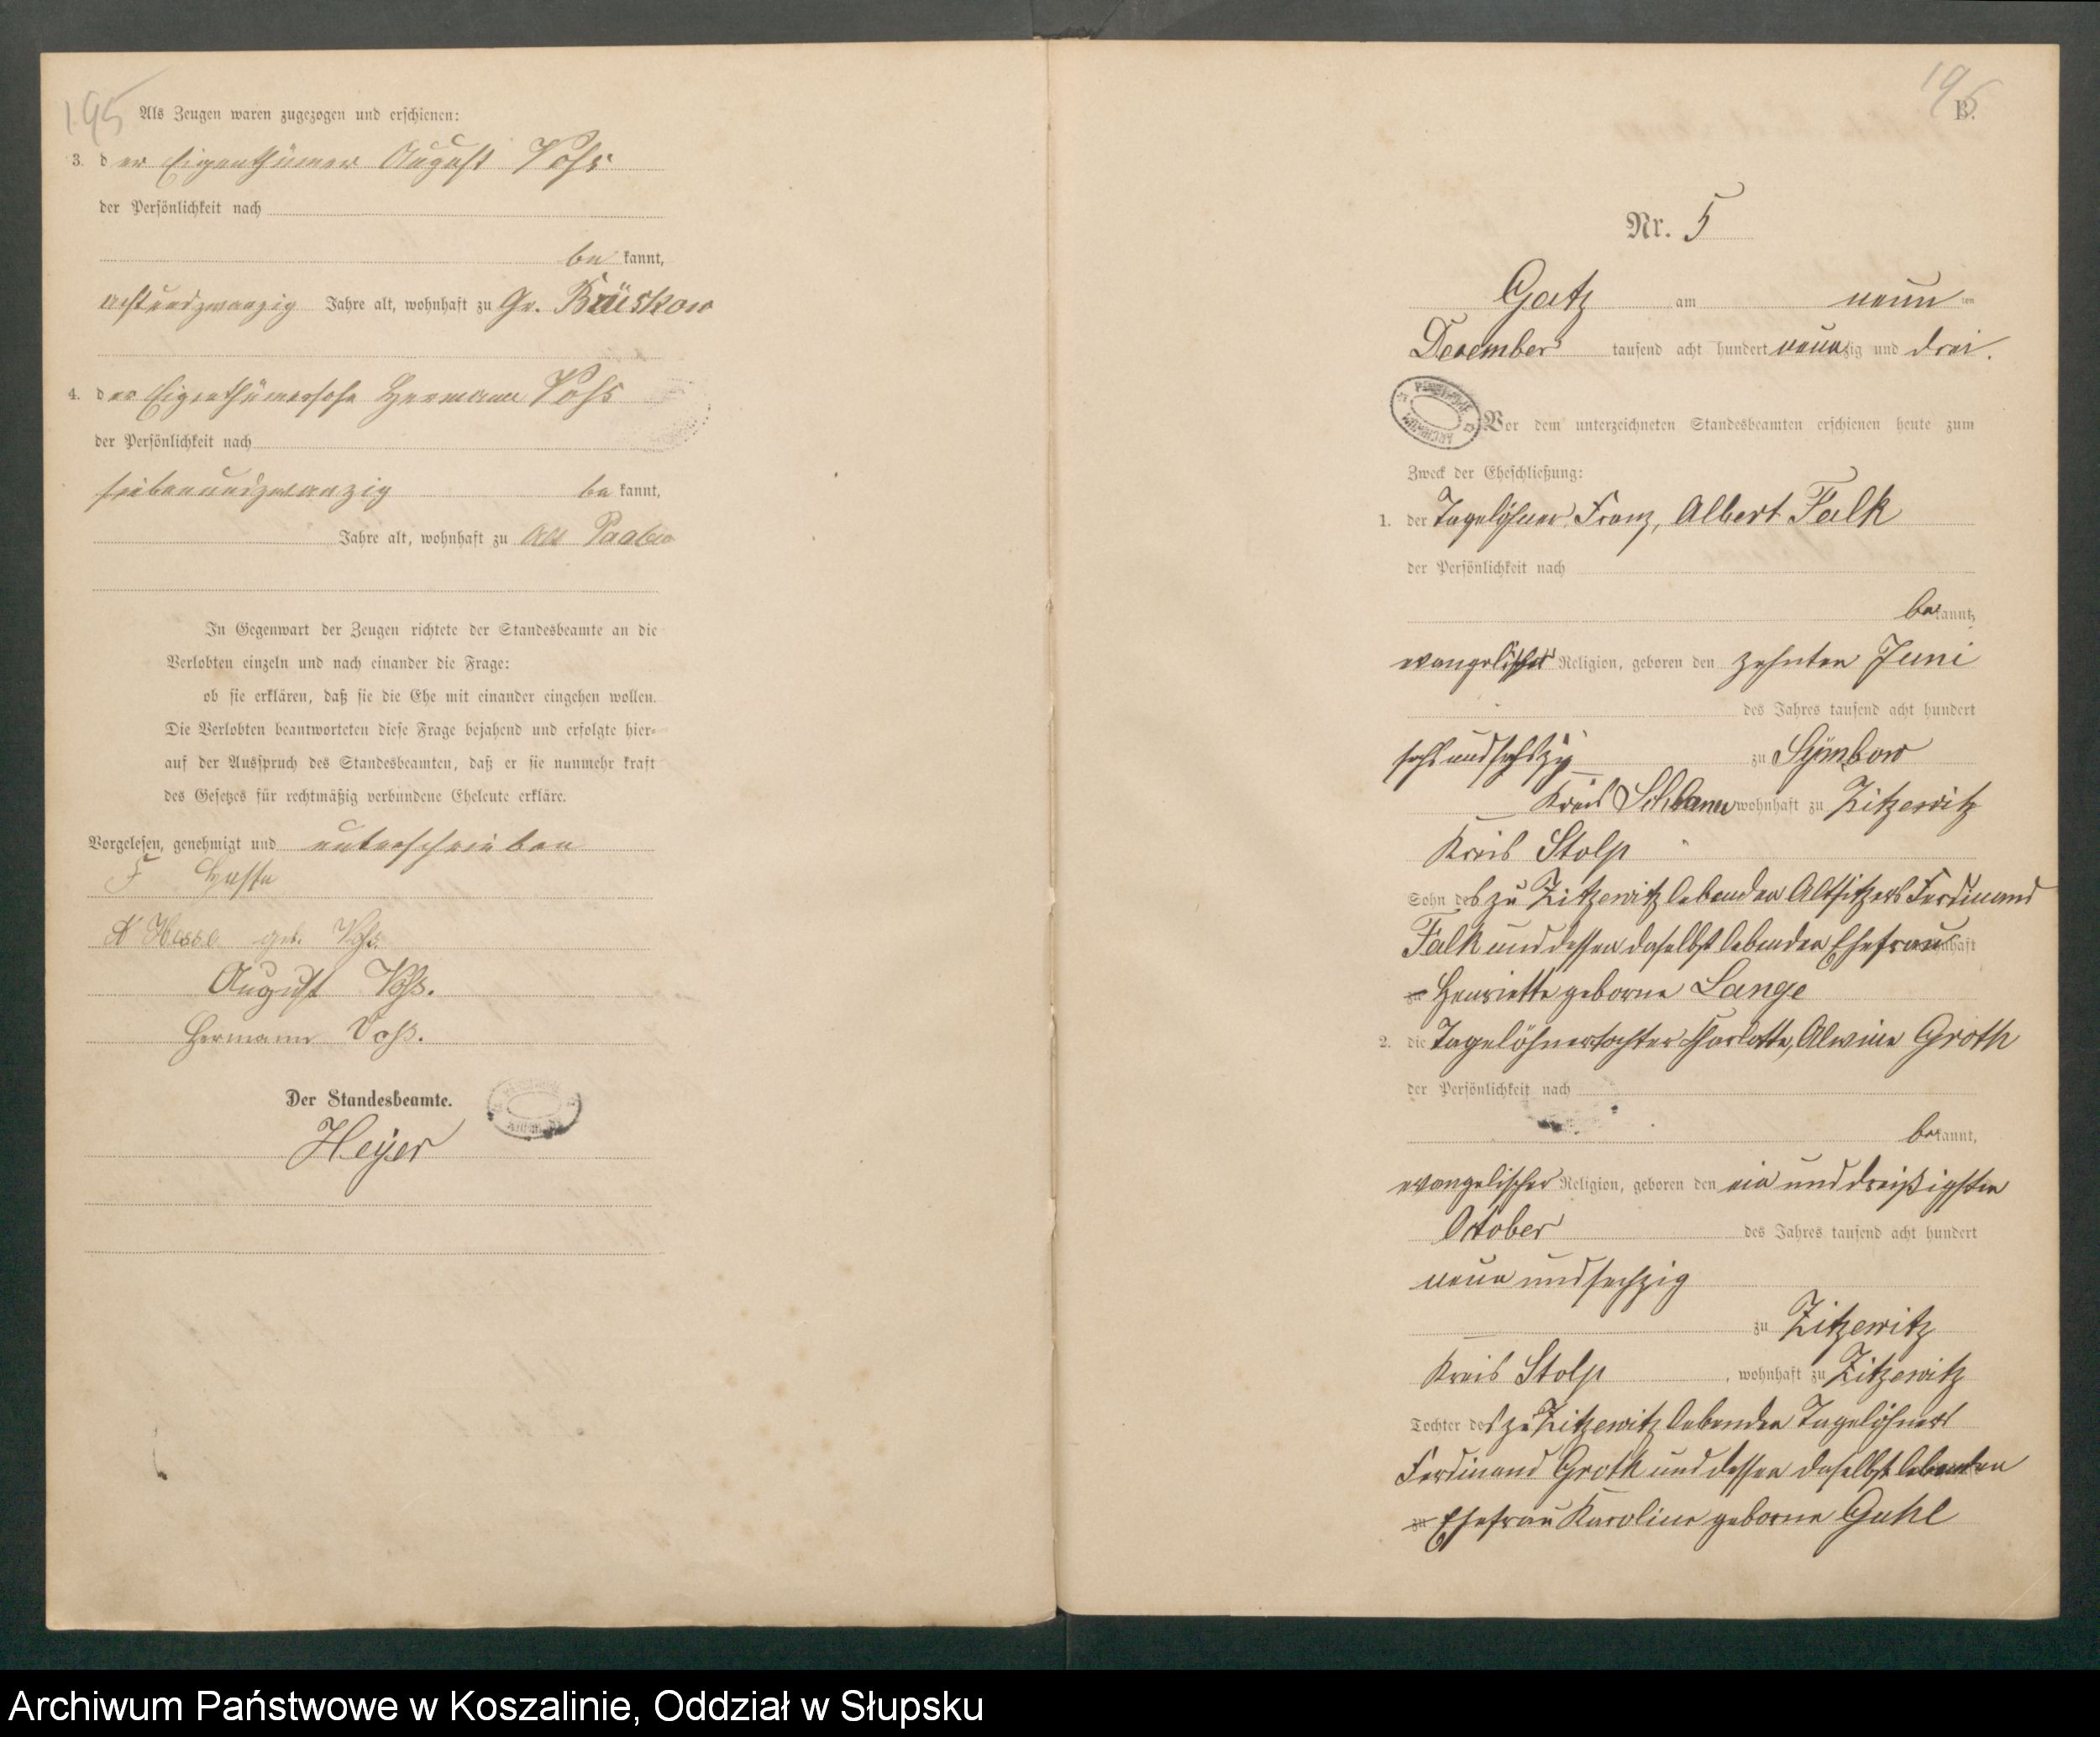 195
Als Zeugen waren zugezogen und erschienen:
3. der Eigenthümer August Voß
der Persönlichkeit nach
be kannt,
achtundzwanzig Jahre alt, wohnhaft zu Gr. Brüskow
4. der Eigenthümersohn Hermann Voß
der Persönlichkeit nach
siebenundzwanzig be kannt,
Jahre alt, wohnhaft zu Alt Paalow
In Gegenwart der Zeugen richtete der Standesbeamte an die
Verlobten einzeln und nach einander die Frage:
ob sie erklären, daß sie die Ehe mit einander eingehen wollen.
Die Verlobten beantworteten diese Frage bejahend und erfolgte hier-
auf der Ausspruch des Standesbeamten, daß er sie nunmehr kraft
des Gesetzes für rechtmäßig verbundene Eheleute erkläre.
Vorgelesen, genehmigt und unterschrieben
F Hasse
Hasse geb. Voß
August Voß.
Hermann Voß.
Der Standesbeamte.
Heyer
195
B.
Nr. 5
Gatz am neun ten
December tausend acht hundert neunzig und drei.
Vor dem unterzeichneten Standesbeamten erschienen heute zum
Zweck der Eheschließung:
1. der Tagelöhner Franz, Albert Falk
der Persönlichkeit nach
bekannt,
evangelischer Religion, geboren den zehnten Juni
des Jahres tausend acht hundert
sechsundsechszig zu Symbow
Kreis Schlawe wohnhaft zu Zitzewitz
Kreis Stolp
Sohn des zu Zitzewitz lebenden Altsitzers Ferdinand
Falk und dessen daselbst lebenden Ehefrau wohnhaft
zu Henriette geborne Lange
2. die Tagelöhnertochter Charlotte, Alwine Groth
der Persönlichkeit nach
bekannt,
evangelischer Religion, geboren den ein und dreißigsten
October des Jahres tausend acht hundert
neun und sechzig
zu Zitzewitz
Kreis Stolp, wohnhaft zu Zitzewitz
Tochter des zu Zitzewitz lebenden Tagelöhners
Ferdinand Groth und dessen daselbst lebenden
zu Ehefrau Karoline geborne Guhl
Archiwum Państwowe w Koszalinie, Oddział w Słupsku